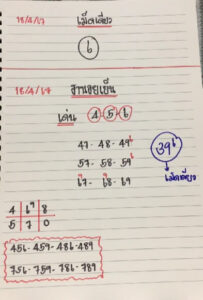 18/4/67 เม็ดเดียว
6
18/4/67 ฐานซอยเย็น
เด่น 4-5-6
47-48-49
57-58-59
67-68-69
396
เม็ดเดียว
4 6 9 8
5 7 0
456-459-486-489
756-759-786-789